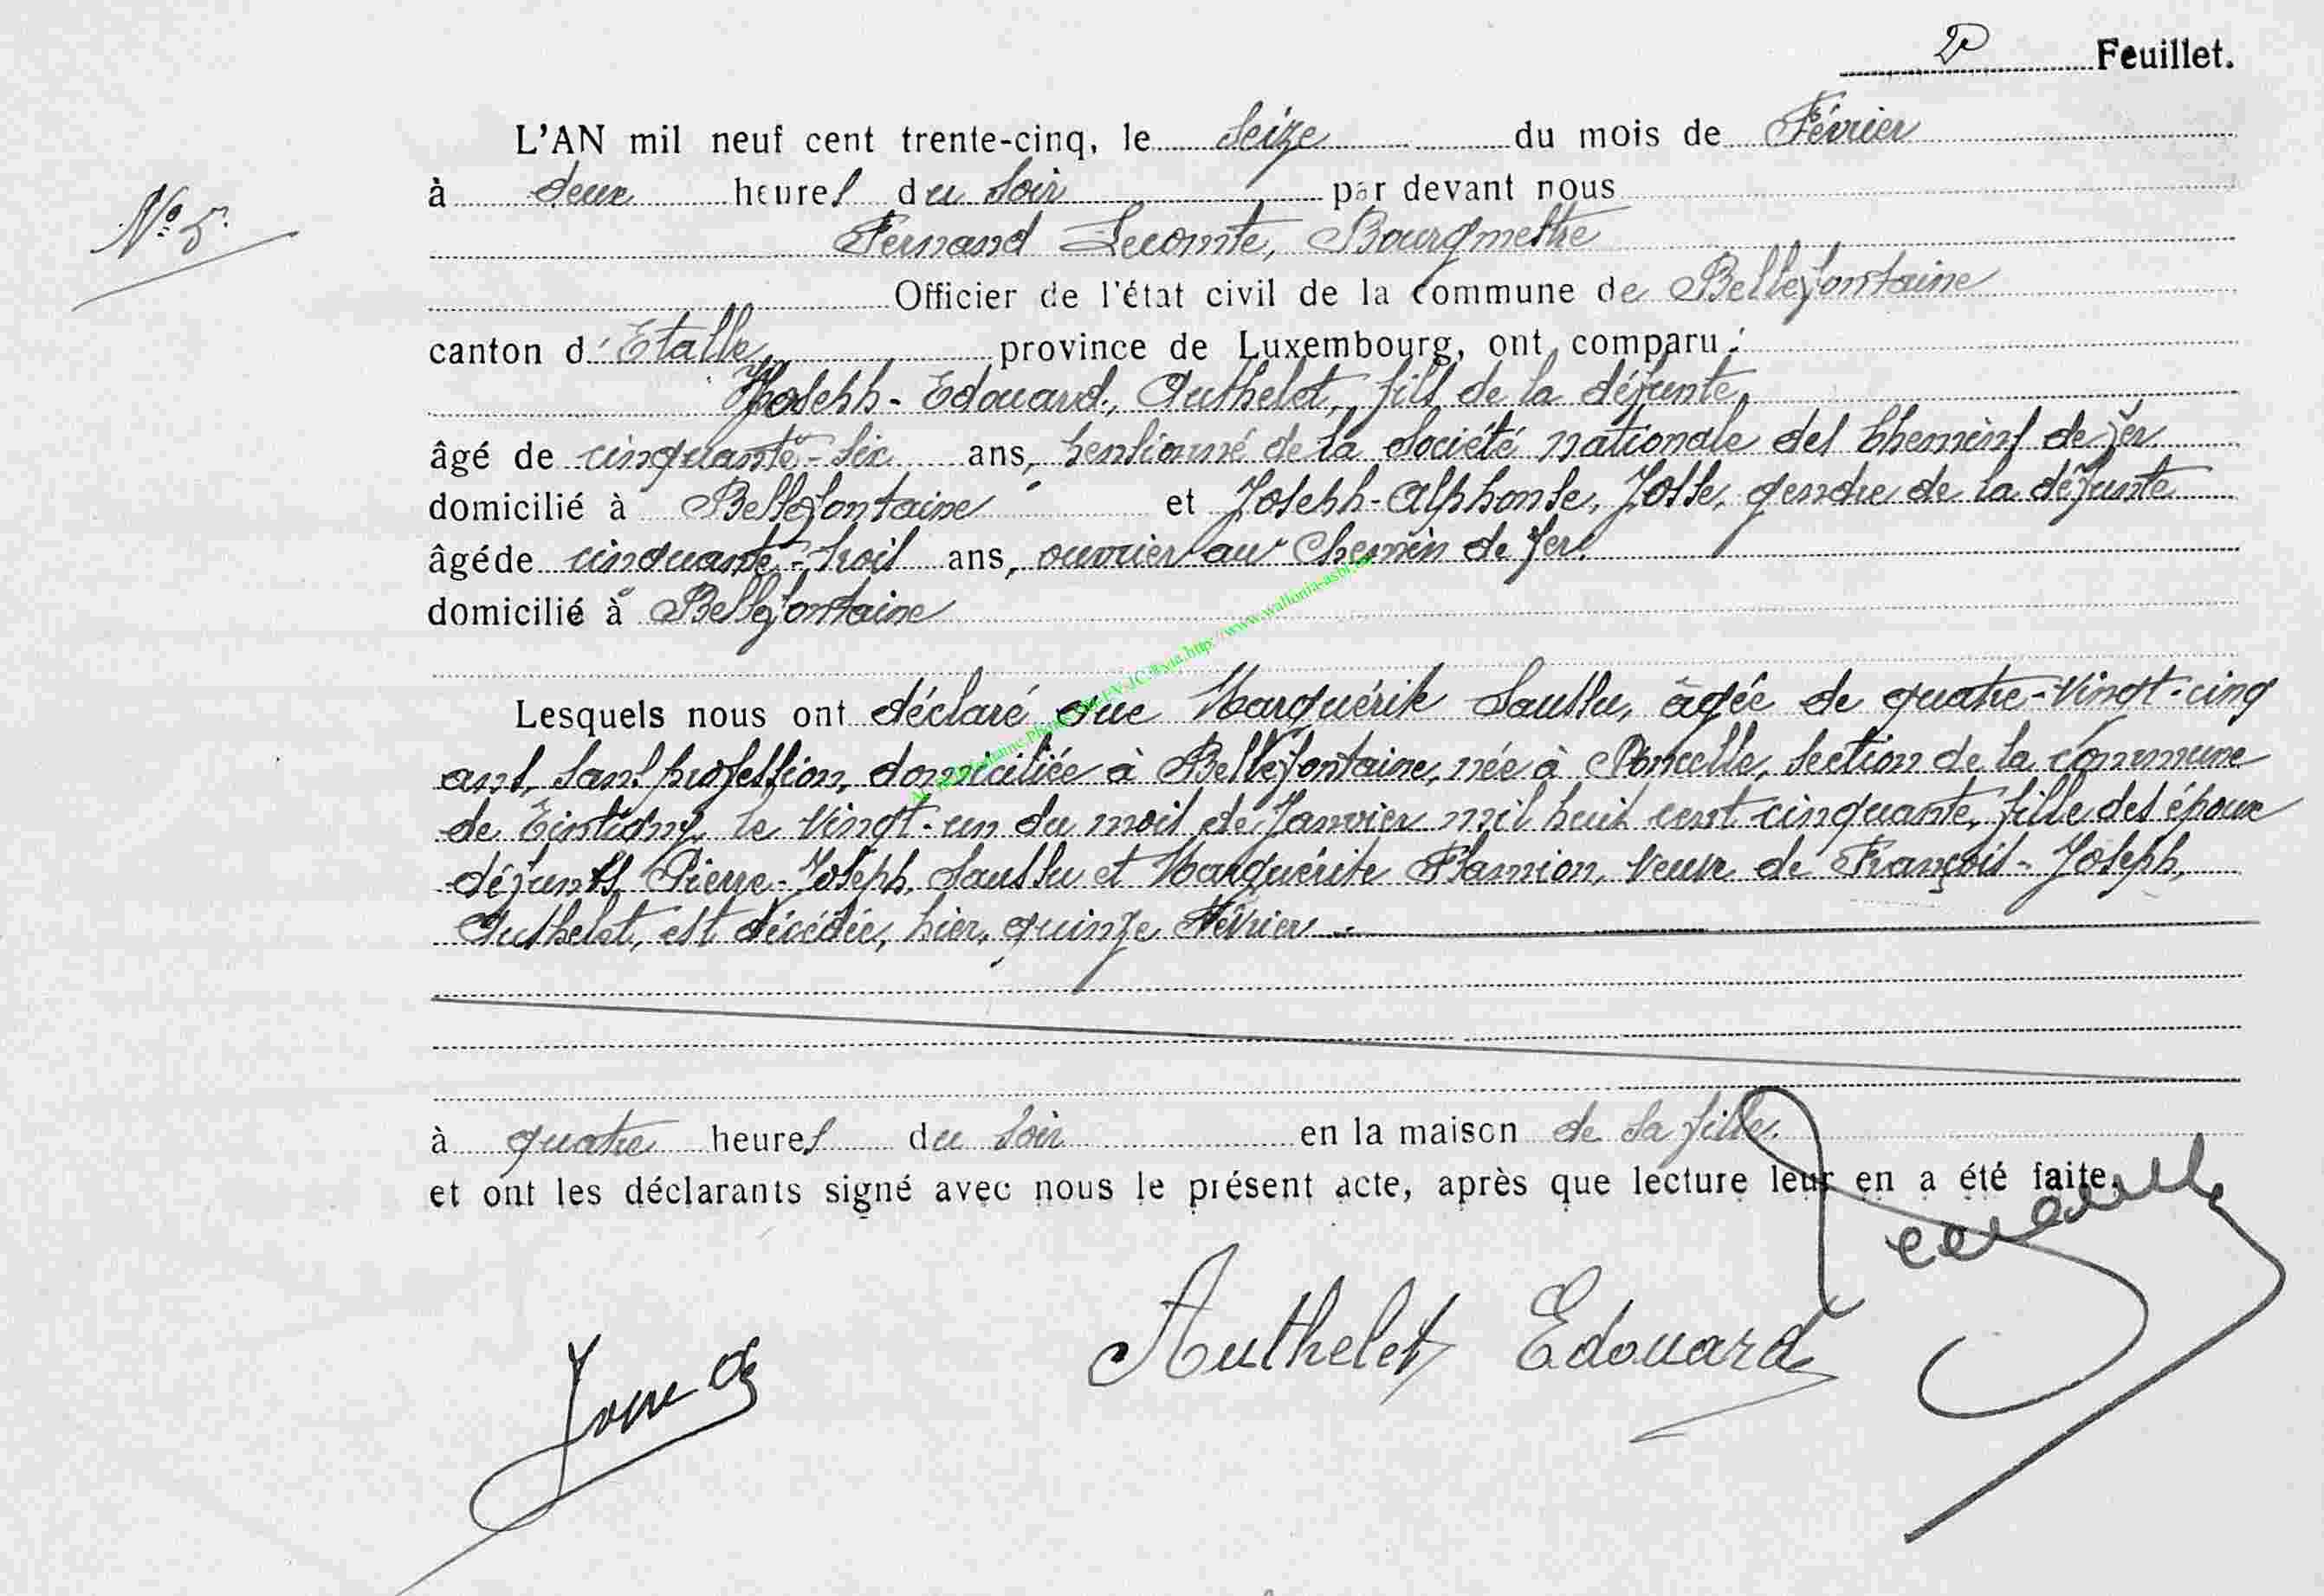 2e Feuillet.
L'AN mil neuf cent trente-cinq, le seize du mois de Février
à deux heures du soir par devant nous
N° 5.
Fernand Lecomte, Bourgmestre
Officier de l'état civil de la commune de Bellefontaine
canton d'Etalle province de Luxembourg, ont comparu :
Joseph-Edouard, Authelet, fils de la défunte,
âgé de cinquante-six ans, pensionné de la société nationale des Chemins de fer
domicilié à Bellefontaine et Joseph-Alphonse, Josse, gendre de la défunte
âgé de cinquante-trois ans, ouvrier au Chemin de fer.
domicilié à Bellefontaine
Lesquels nous ont déclaré que Marguérite Saussu, âgée de quatre-vingt-cinq
ans, sans profession, domiciliée à Bellefontaine, née à Poncelle, section de la commune
de Tintigny, le vingt-un du mois de Janvier mil huit cent cinquante, fille des époux
défunts, Pierre-Joseph, Saussu et Marguérite Flamion, veuve de François-Joseph,
Authelet, est décédée, hier, quinze Février
à quatre heures du soir en la maison de sa fille.
et ont les déclarants signé avec nous le présent acte, après que lecture leur en a été faite.
Authelet Edouard